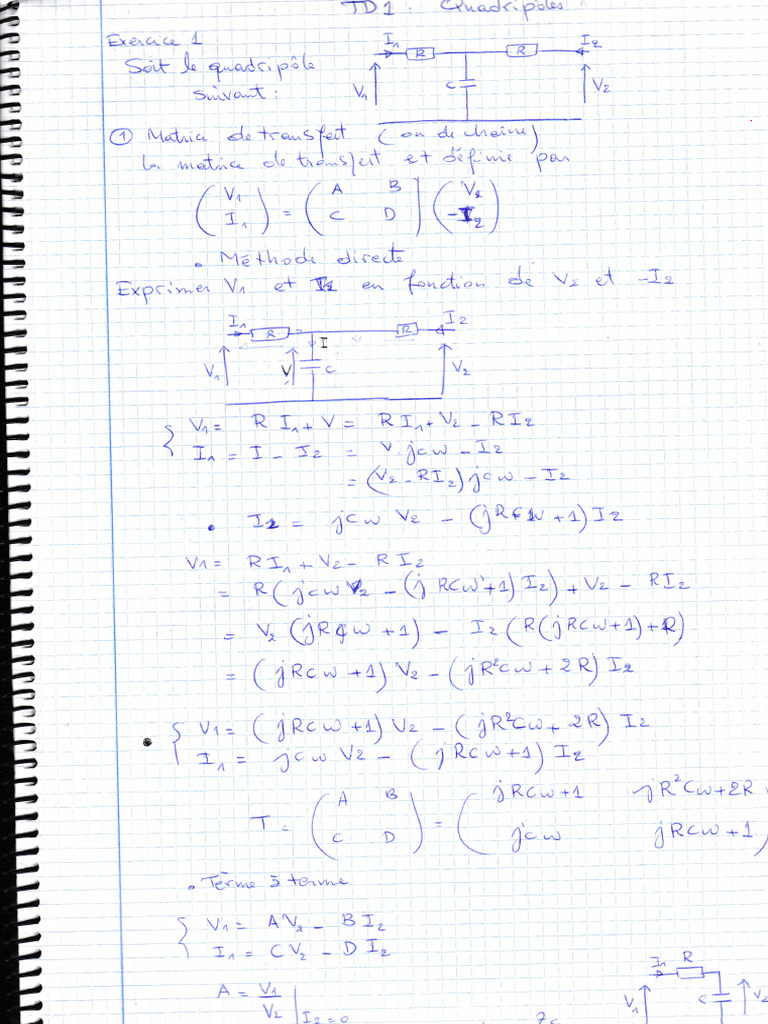 TD1 : Quadripôles
Exercice 1
Soit le quadripôle
suivant :
I₁ R R I₂
V₁ C V₂
① Matrice de transfert (ou de chaîne)
la matrice de transfert et définie par
(V₁ I₁) = (A B C D) (V₂ -I₂)
• Méthode directe
Exprimer V₁ et I₁ en fonction de V₂ et -I₂
I₁ R R I₂
I
V₁ V C V₂
{ V₁ = R I₁ + V = R I₁ + V₂ - R I₂
I₁ = I - I₂ = V jcω - I₂
= (V₂ - RI₂) jcω - I₂
• I₁ = jcω V₂ - (jRcω + 1) I₂
V₁ = R I₁ + V₂ - R I₂
= R (jcω V₂ - (j RCω + 1) I₂) + V₂ - RI₂
= V₂ (jRcω + 1) - I₂ (R(jRCω + 1) + R)
= (jRcω + 1) V₂ - (jR²Cω + 2R) I₂
• { V₁ = (jRCω + 1) V₂ - (jR²Cω + 2R) I₂
I₁ = jcω V₂ - (jRCω + 1) I₂
T = (A B C D) = (jRCω + 1 jR²Cω + 2R jcω jRCω + 1)
• Terme à terme
{ V₁ = A V₂ - B I₂
I₁ = C V₂ - D I₂
A = V₁/V₂ | I₂ = 0
I₁ R
V₁ C V₂